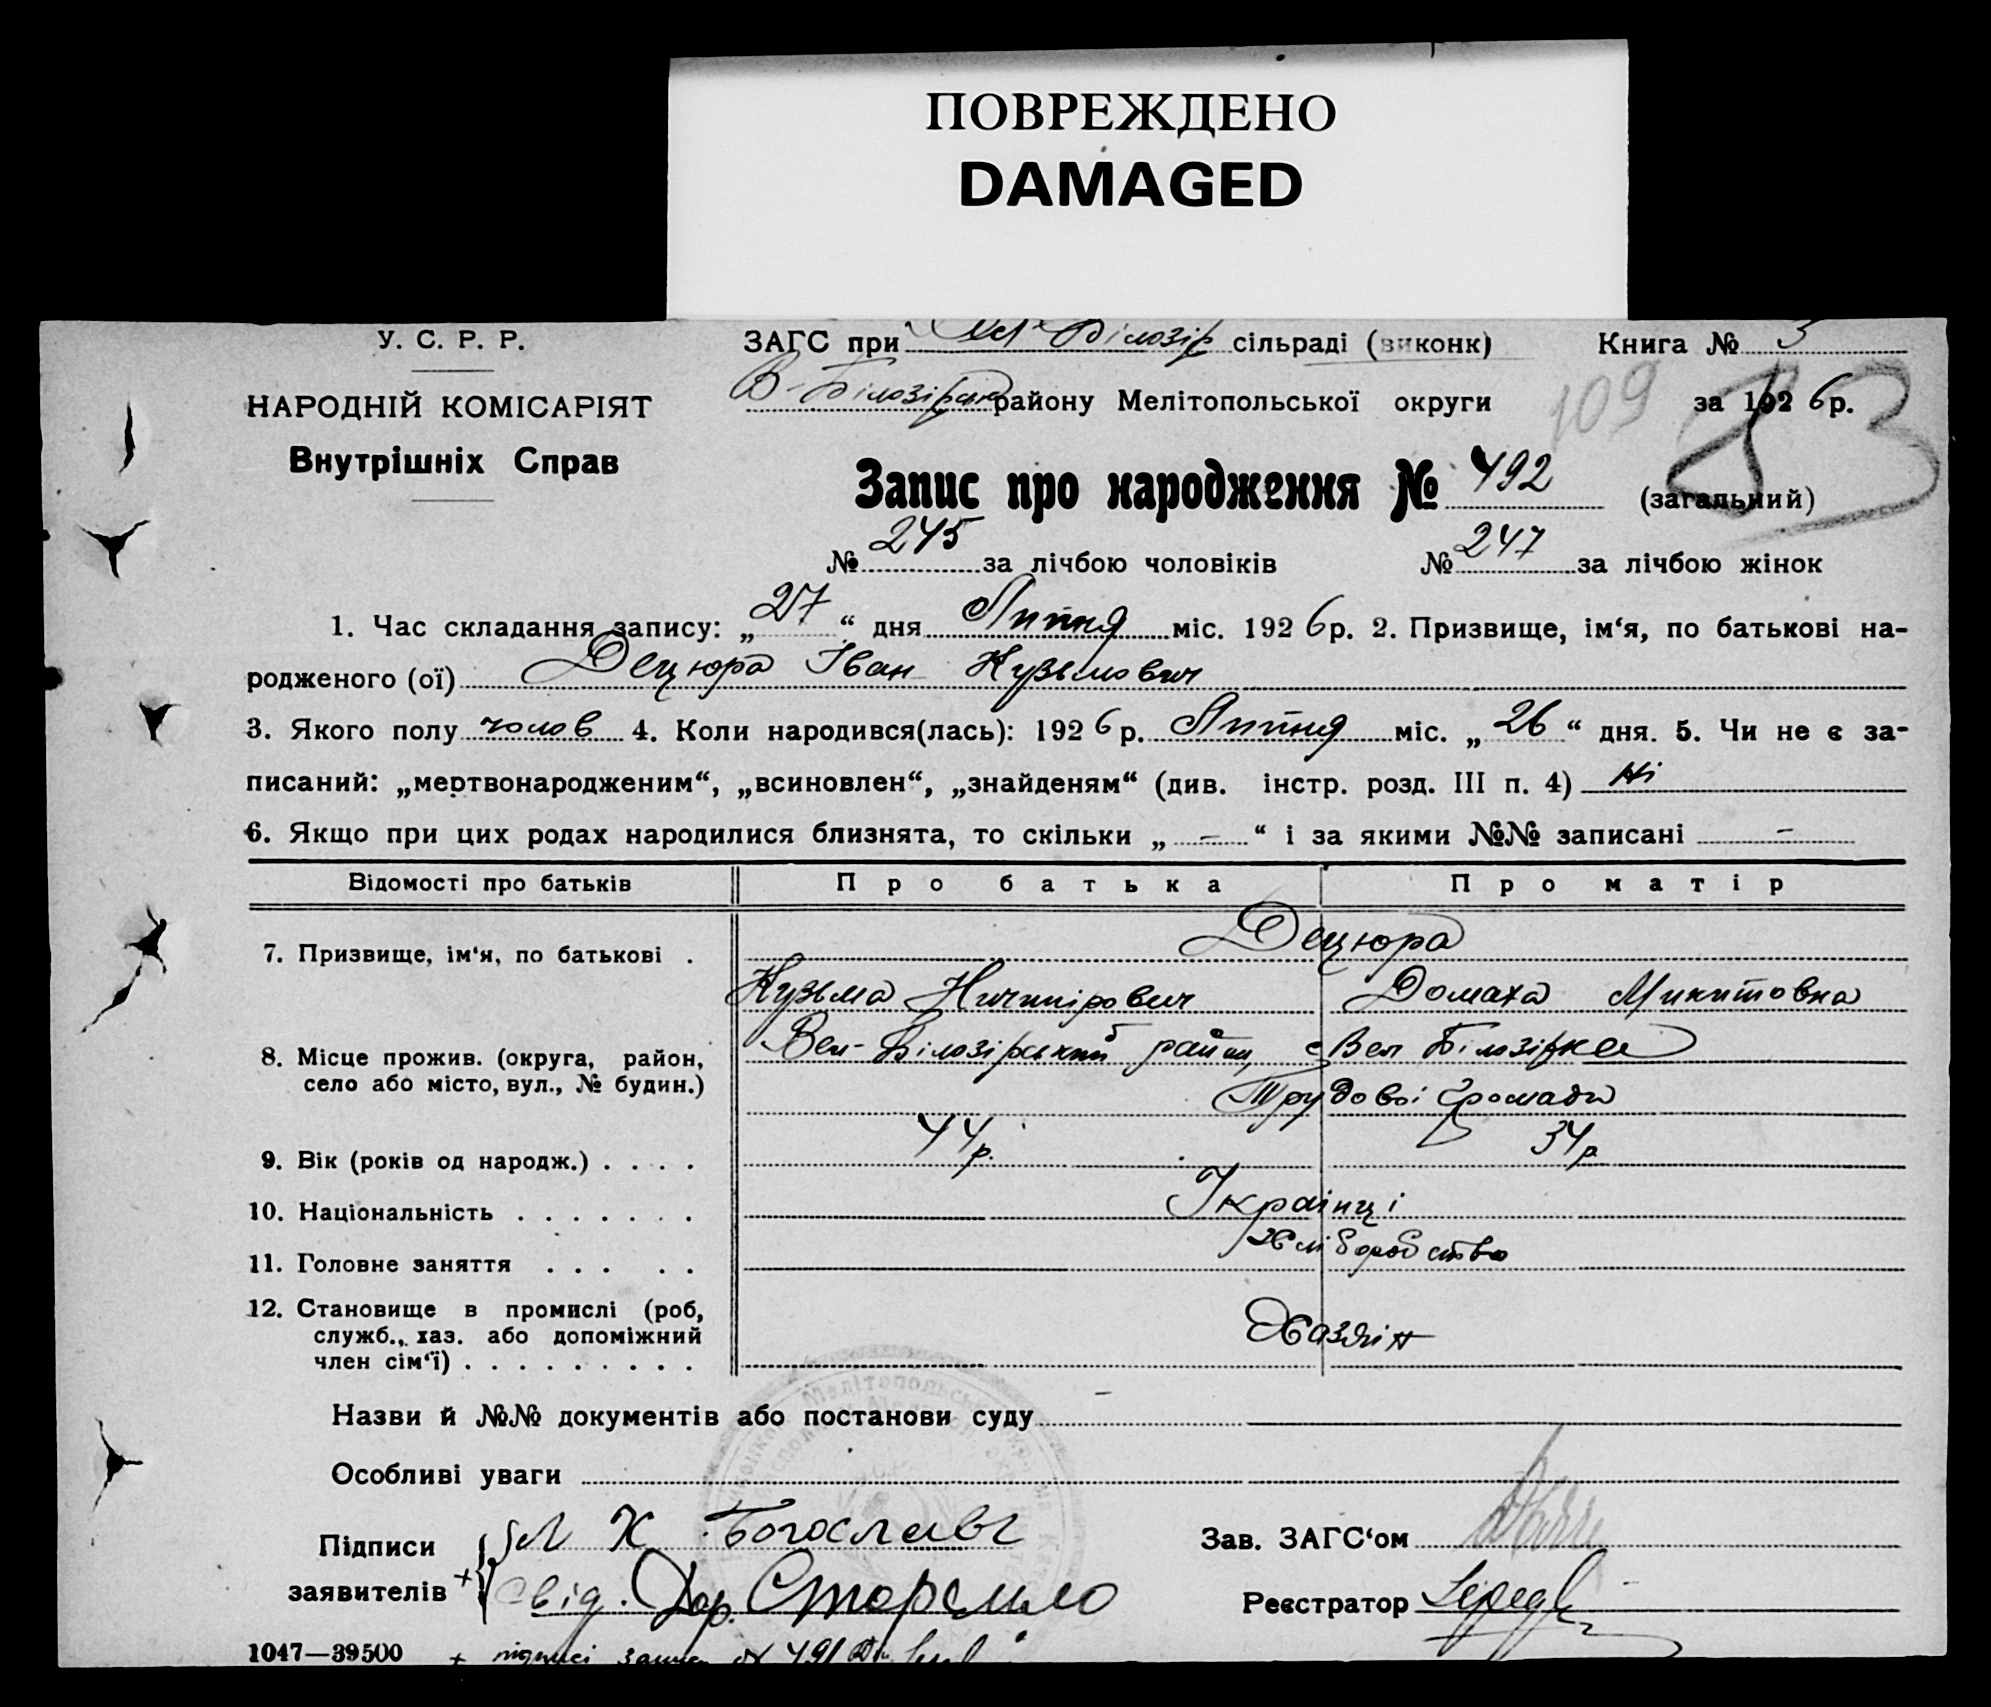 ПОВРЕЖДЕНО
DAMAGED
У. С. Р. Р.
ЗАГС при Вел Білозір сільраді (виконк)
Книга № 3
НАРОДНІЙ КОМІСАРІЯТ
В-Білозірськ району Мелітопольської округи
109
за 1926 р.
83
Внутрішніх Справ
Запис про народження № 492 (загальний)
№ 245 за лічбою чоловіків № 247 за лічбою жінок
1. Час складання запису: „27“ дня Липня міс. 1926 р. 2. Призвище, ім‘я, по батькові на-
родженого (ої) Децюра Іван Кузьмович
3. Якого полу чолов 4. Коли народився(лась): 1926 р. Липня міс. „26“ дня. 5. Чи не є за-
писаний: „мертвонародженим“, „всиновлен“, „знайденям“ (див. інстр. розд. III п. 4) Ні
6. Якщо при цих родах народилися близнята, то скільки „ – “ і за якими №№ записані –
Відомості про батьків Про батька Про матір
7. Призвище, ім‘я, по батькові . Децюра
Кузьма Ничипірович Домаха Микитовна
8. Місце прожив. (округа, район, Вел-Білозірський район, с Вел Білозірка
село або місто, вул., № будин.) Трудової Громади
9. Вік (років од народж.) . . . . 44 р. 34 р
10. Національність . . . . . . . Українці
11. Головне заняття . . . . . Хліборобство
12. Становище в промислі (роб,
служб., хаз. або допоміжний Хазяїн
член сім‘ї) . . . . . . . . .
Назви й №№ документів або постанови суду –
Особливі уваги
Підписи
заявителів
+
К
свід. Дар. Сторчило
Зав. ЗАГС‘ом
Реєстратор
1047—39500
+ підписі запис № 491